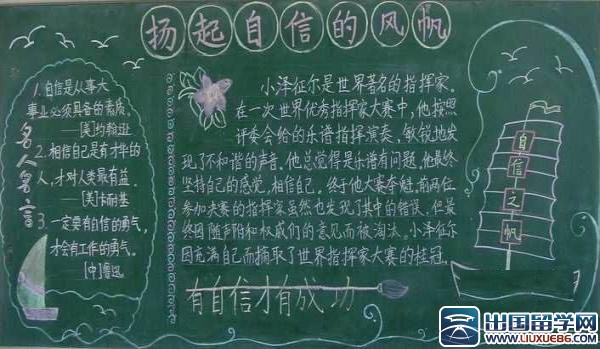 扬起自信的风帆
名人名言
1.自信是从事大
事业必须具备的素质。
——[美]约翰逊
2.相信自己是有才华的
人,才对人类最有益。
——[美]卡耐基
3.一定要有自信的勇气,
才会有工作的勇气。
[中]鲁迅
小泽征尔是世界著名的指挥家。
在一次世界优秀指挥家大赛中,他按照
评委会给的乐谱指挥演奏,敏锐地发
现了不和谐的声音。他总觉得是乐谱有问题,他最终
坚持自己的感觉,相信自己。终于他大赛夺魁。前两位
参加决赛的指挥家虽然也发现了其中的错误,但最
终因随声附和权威们的意见而被淘汰。小泽征尔
因充满自己而摘取了世界指挥家大赛的桂冠。
有自信才有成功
自信之帆
出国留学网
WWW.LIUXUE86.COM